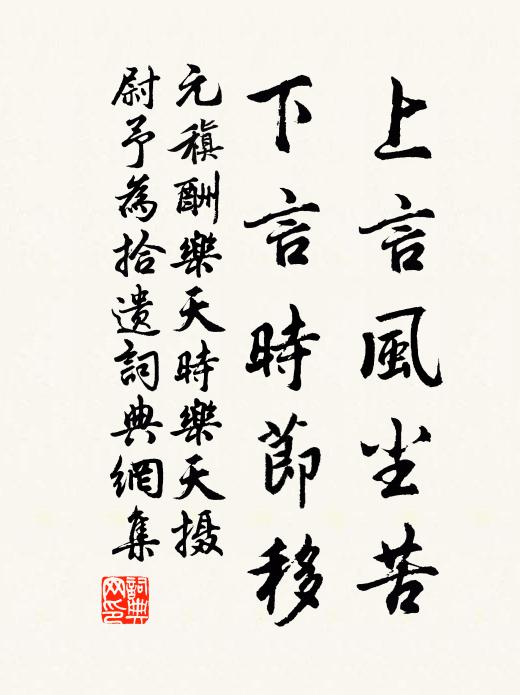 上言風尘苦
下言時節移
元稹酬樂天時樂天摄
尉予為拾遗詞典網集
詞典网印